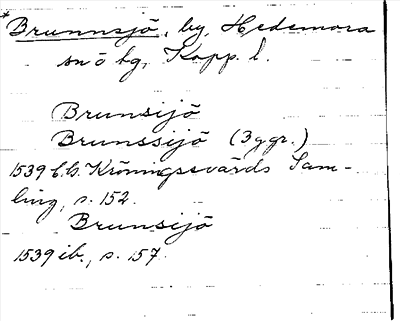 *Brunnsjö, by, Hedemora
sn o hg, Kopp. l.
Brunsijö
Brunssijö (3 ggr.)
1539 f.b. Kröningssvärds Sam-
ling, s. 152.
Brunsijö
1539 ib., s. 157.